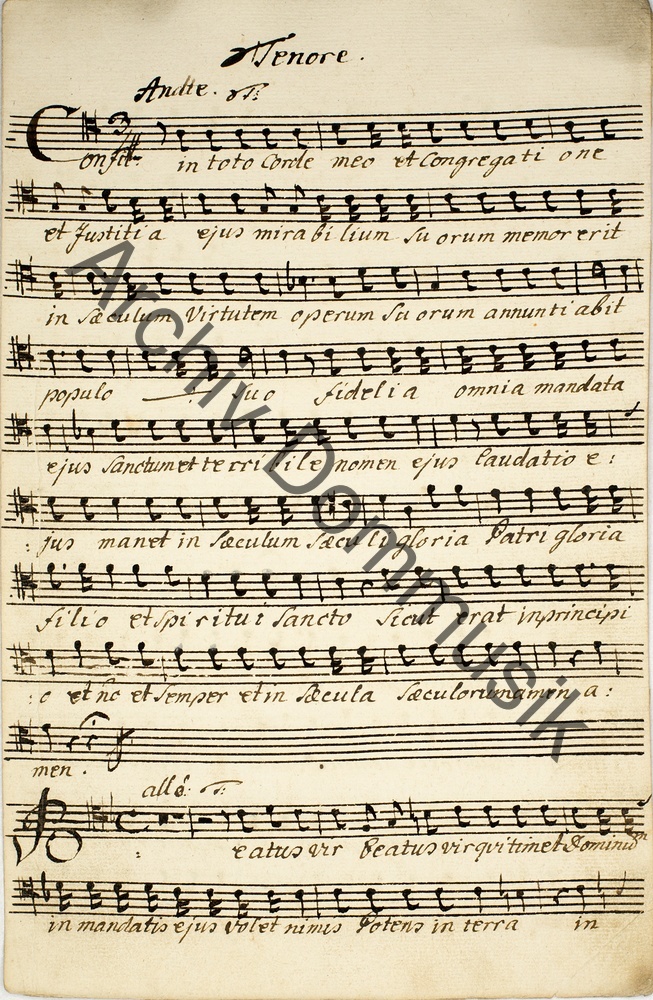 Tenore.
Andte. T:
Confit: in toto Corde meo et Congregati one
et Justitia ejus mirabilium Suorum memor erit
in Sæculum Virtutem operum Suorum annuntiabit
populo suo fidelia omnia mandata
ejus Sanctum et terribile nomen ejus laudatio e:
:jus manet in Sæculum Sæculi gloria Patri gloria
filio et Spiritui Sancto Sicut erat in principi
:o et nc et Semper et in Sæcula Sæculorum amen a:
men.
allo: T:
Beatus vir Beatus vir qui timet Dominum
in mandatis ejus volet nimis Potens in terra in
Archiv Dommusik